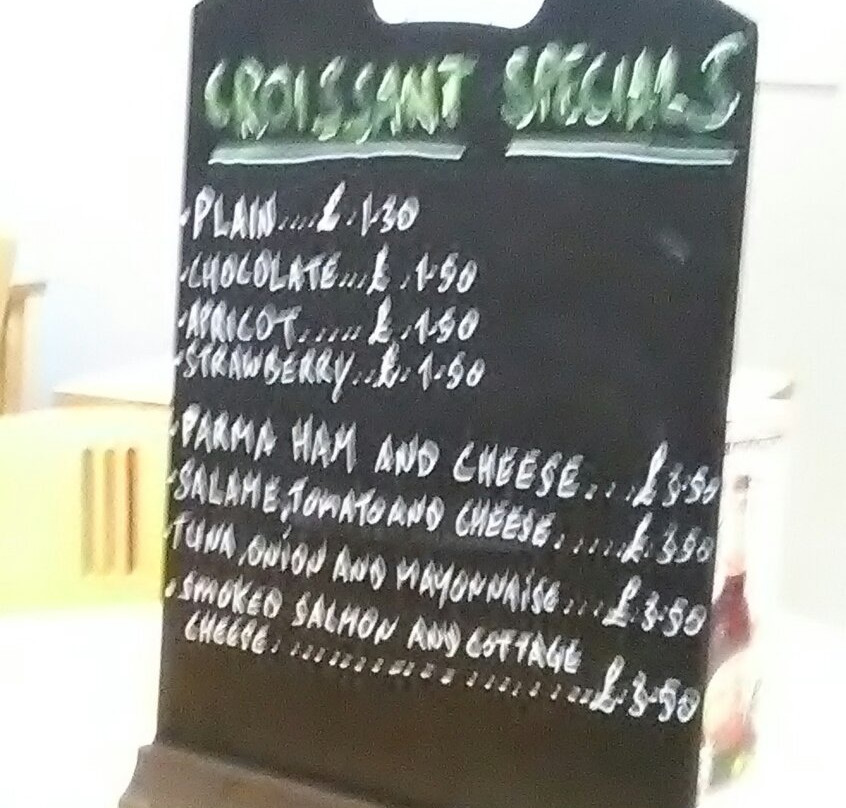 CROISSANT SPECIALS
-PLAIN....£.1.30
-CHOCOLATE...£.1.50
-APRICOT.....£.1.50
-STRAWBERRY..£.1.50
-PARMA HAM AND CHEESE...£3.50
-SALAME,TOMATO AND CHEESE.....£.3.50
-TUNA,ONION AND MAYONNAISE...£.3.50
-SMOKED SALMON AND COTTAGE
CHEESE......................£.3.50